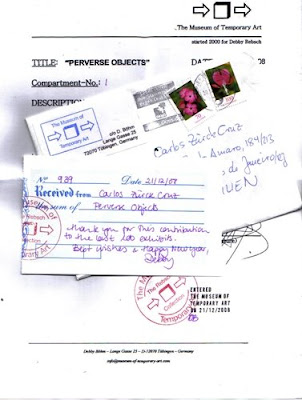 ..The Museum of Temporary Art
started 2000 for Debby Rebsch
TITLE: "PERVERSE OBJECTS"
DATE
08
Compartment-No.: 1
DESCRIPTION
The Museum of
Temporary Art
c/o D. Böhm
Lange Gasse 25
72070 Tübingen, Germany
Carlos
Amaro, 184/03
Nº 929 Date 21/12/07
Received from Carlos Zúrce Cruz
the sum of Perverse Objects
Thank you for this contribution
to the last 100 exhibits.
Best wishes & Happy New Year,
Debby
The Museum of
Temporary Art
Collection
ENTERED
THE MUSEUM OF
TEMPORARY ART
ON 21/12/2008
Debby Böhm – Lange Gasse 25 – D-72070 Tübingen – Germany
info@museum-of-temporary-art.com